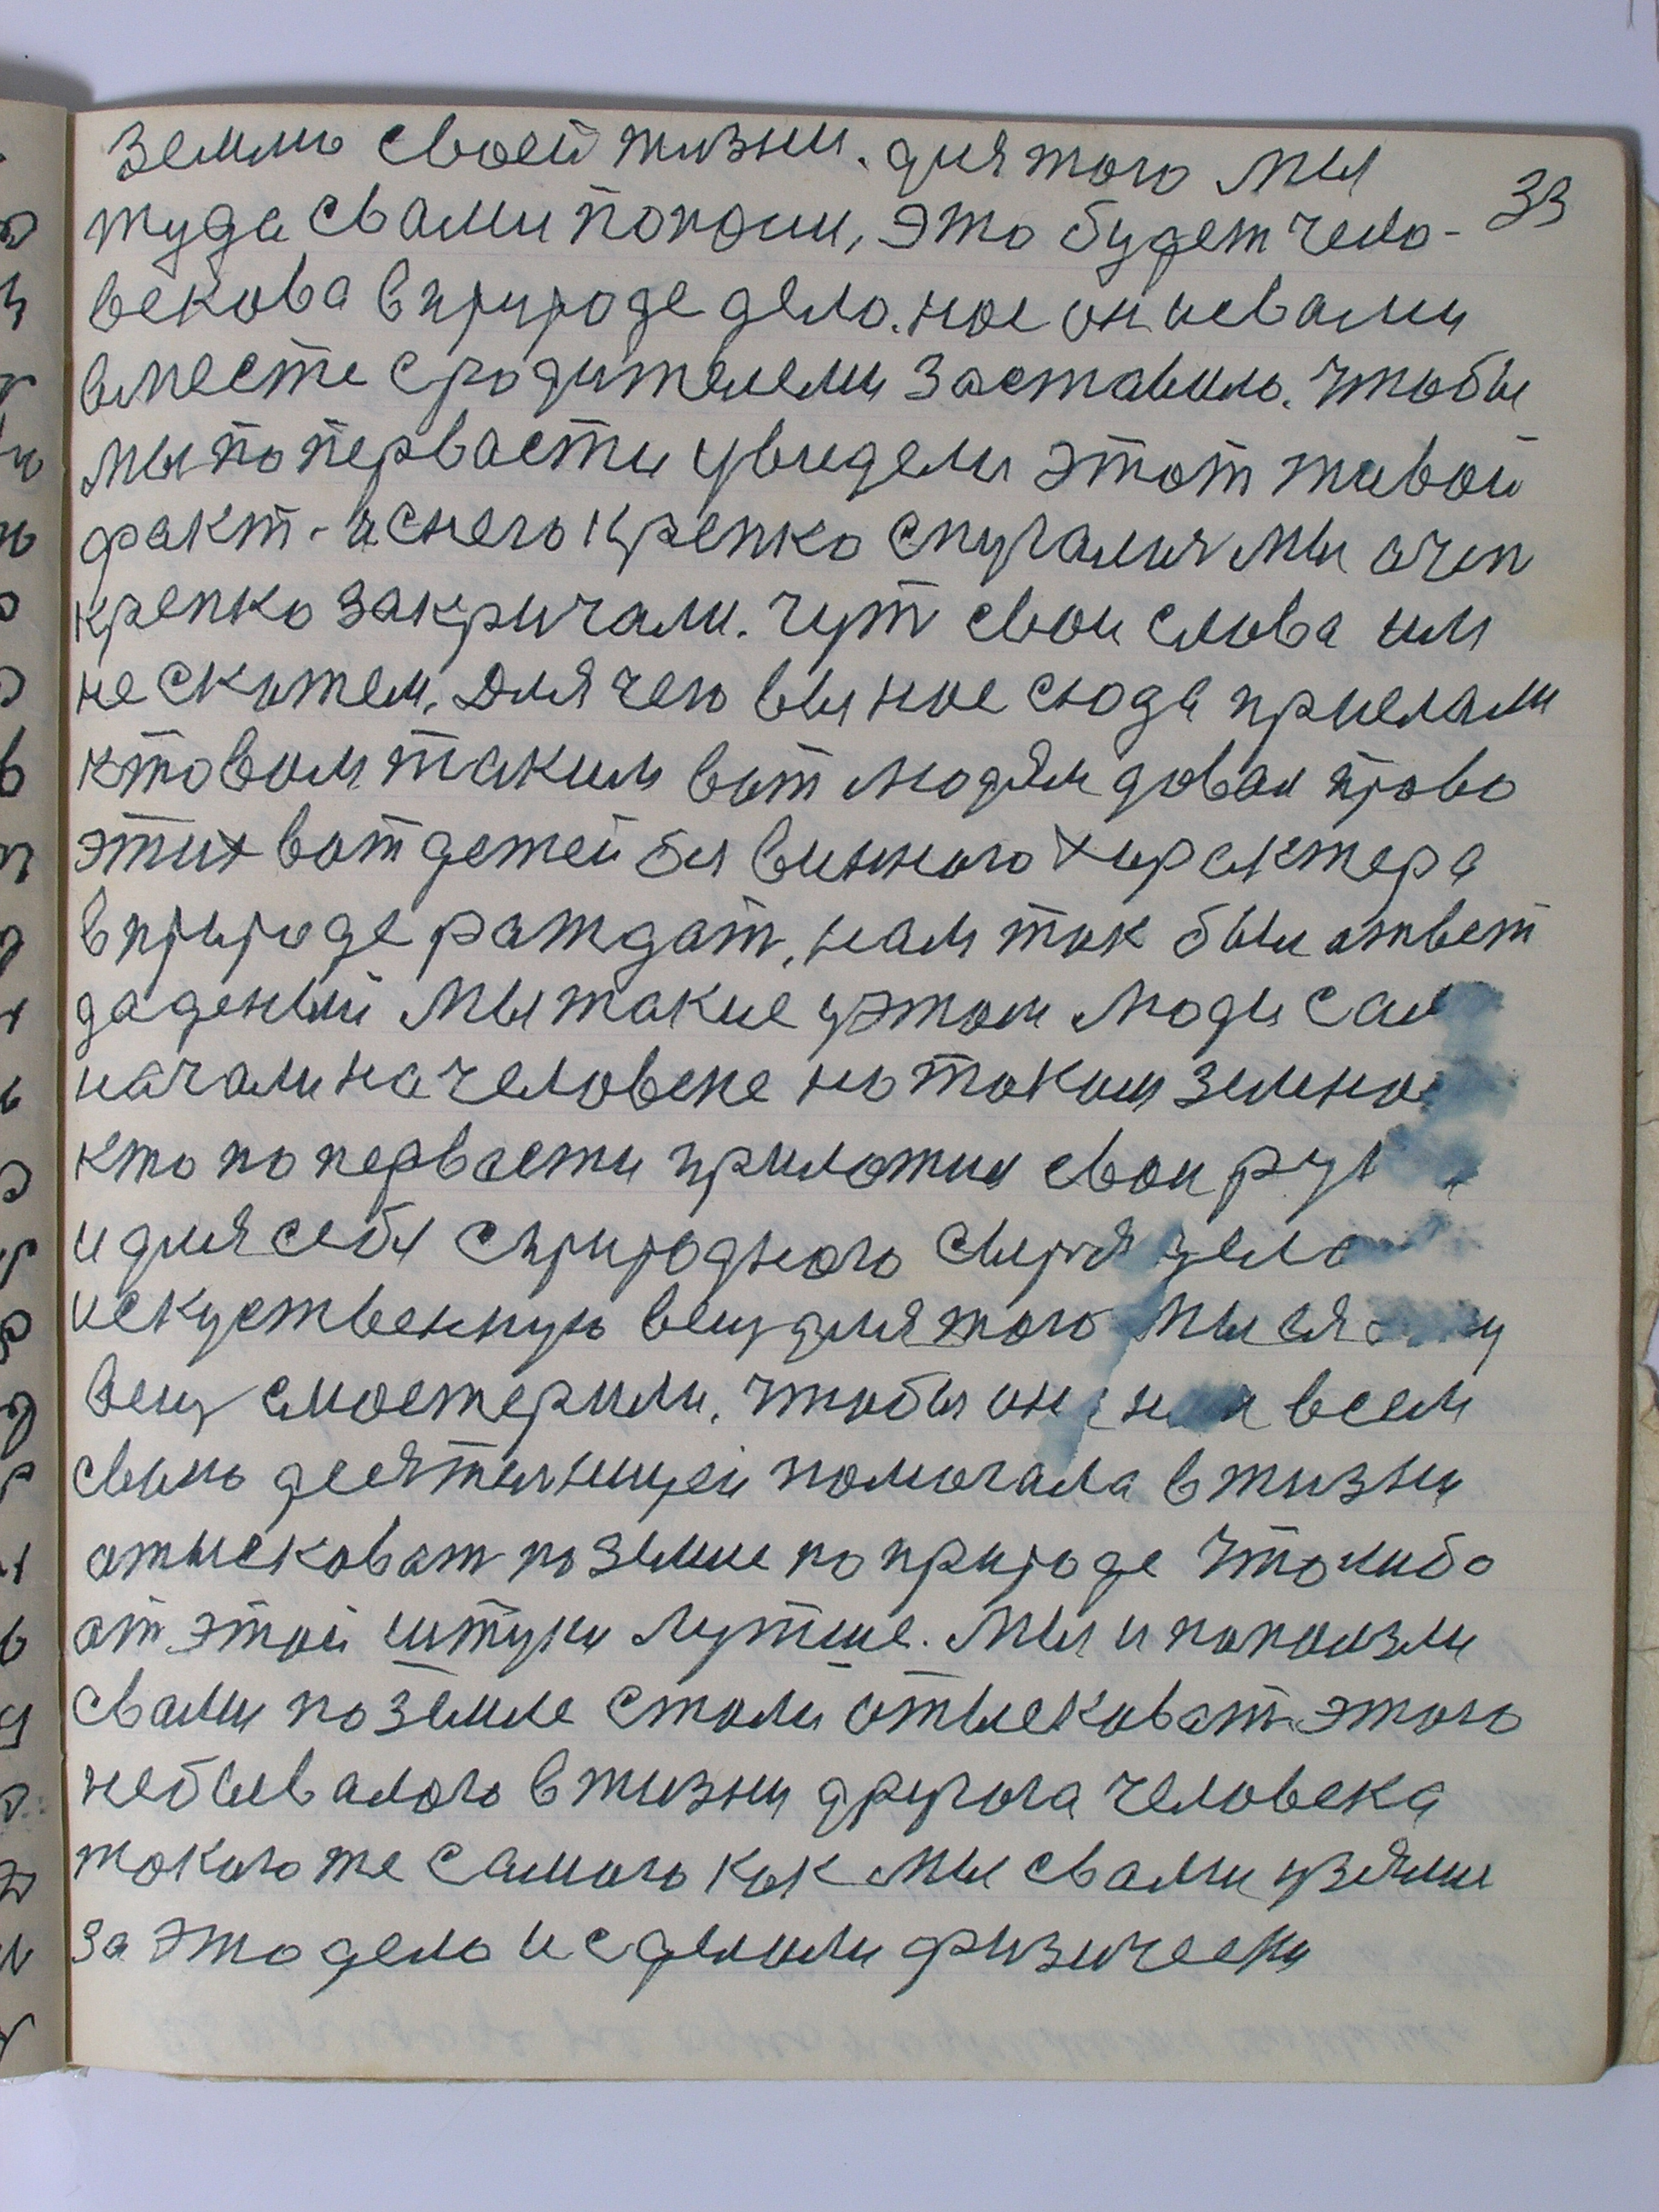 землю своей жизни. для того мы
33
туда свами попали, это будет чело-
векова вприроде дело. нас они свами
вместе сродителеми заставило. чтобы
мы по первасти увидели этот живой
факт. и снего крепко спугалися мы очен
крепко закричали. чут свои слова им
не скажем. Для чего вы нас сюда прислали
кто вам таким вот людям довал право
этих вот детей бизвинного характера
вприроде раждат, нам так был ответ
даденый мы такие уэтом люди сам
начали на человеке на таком земном
кто по первасти приложил свои рук
и для себя сприродного сыря
искуственную вещ для того мы
вещ смастерили. чтобы она всем
свою деятельницей помогала вжизни
отысковат по земле по природе что либо
от этой штуки лутше. Мы и поползли
свами по земле стали отысковат этого
небывалого вжизни другога человека
такого же самого как мы свами узялис
за это дело и сделали физически